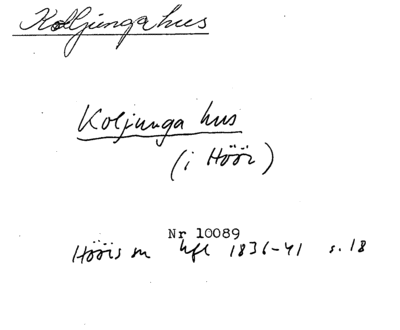 Kolljungahus
Koljunga hus
(i Höör)
Nr 10089
Höörs sn hfl 1836-41 s. 18